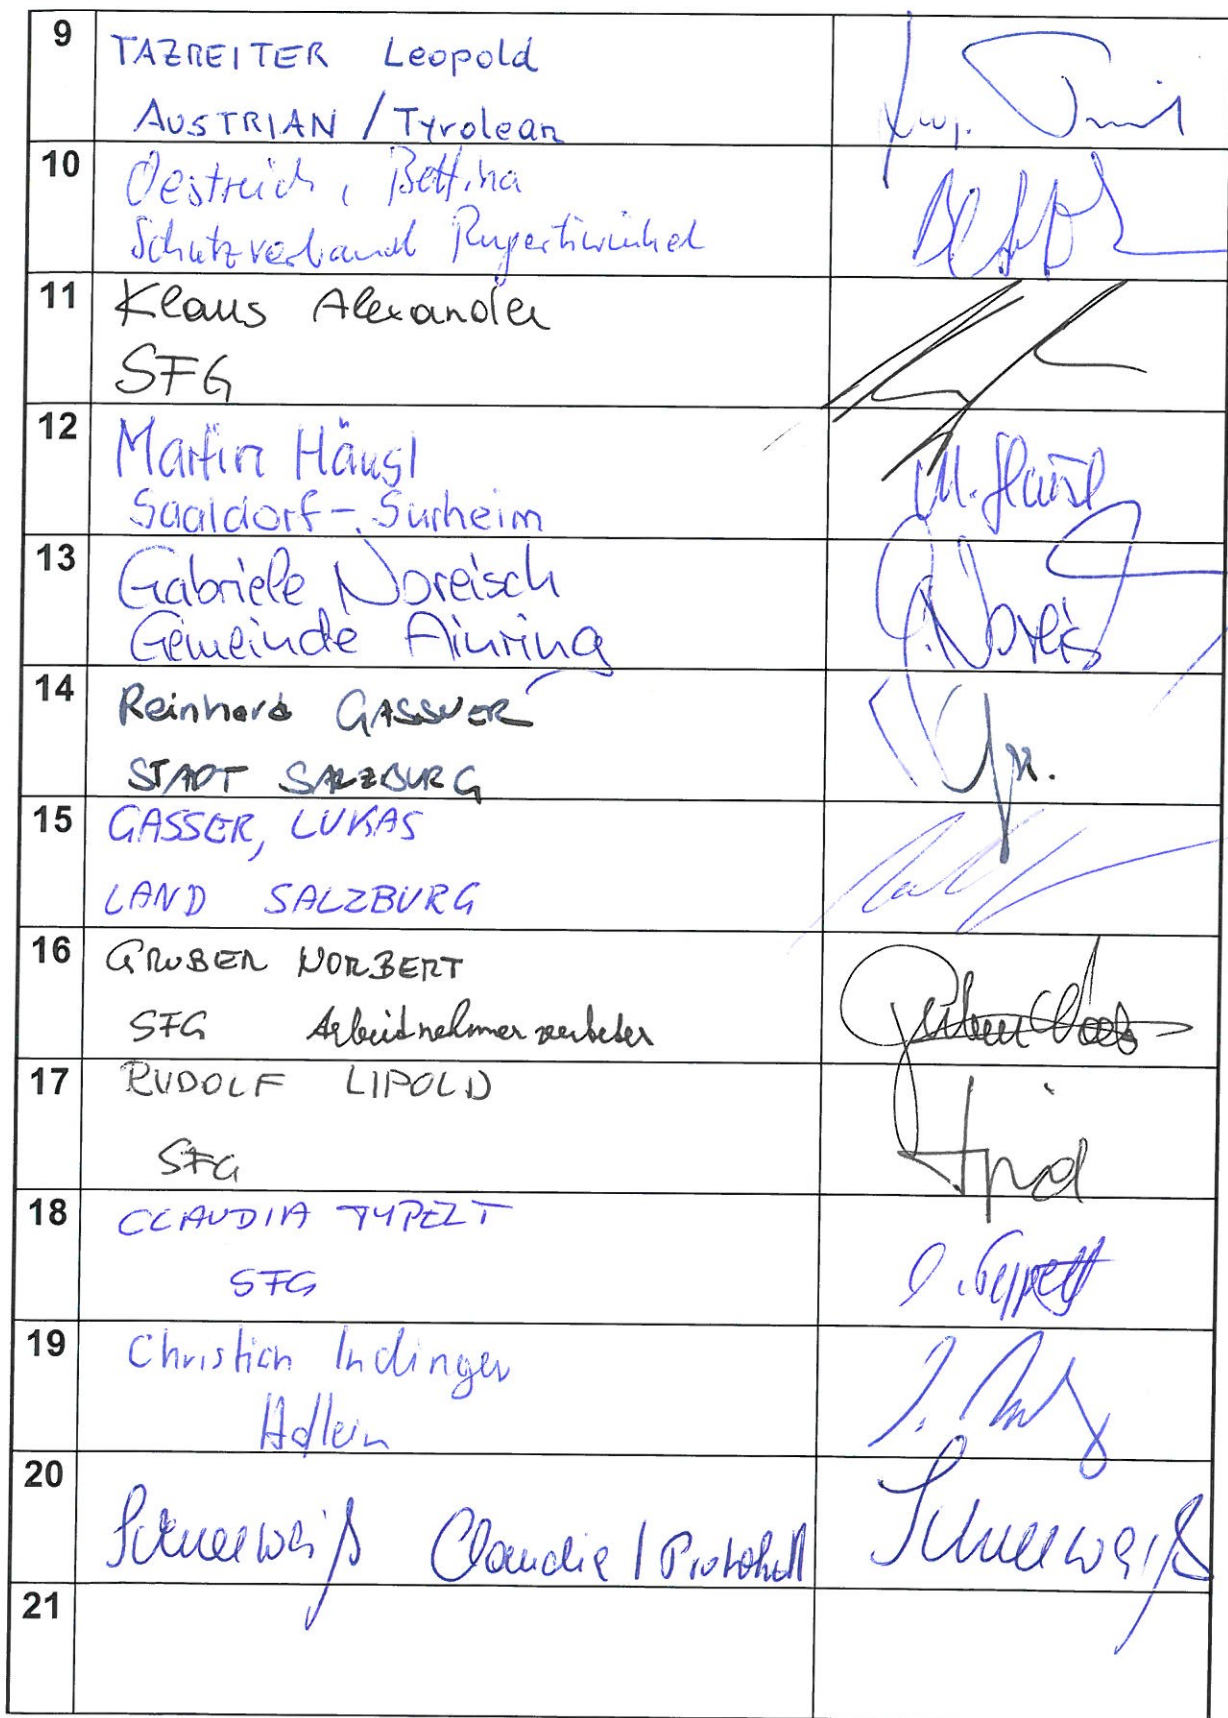 9
TAZREITER Leopold
AUSTRIAN / Tyrolean
10
Oestreich, Bettina
Schutzverband Rupertiwinkel
11
Klaus Alexander
SFG
12
Martin Häusl
Saaldorf-Surheim
M. Häusl
13
Gabriele Noreisch
Gemeinde Ainring
G. Noreis
14
Reinhard GASSNER
STADT SALZBURG
15
GASSER, LUKAS
LAND SALZBURG
16
GRUBER NORBERT
SFG Arbeitnehmervertreter
17
RUDOLF LIPOLD
SFG
18
CLAUDIA TYPELT
SFG
C. Typelt
19
Christian Indinger
Hallein
20
Schneeweiß Claudia / Protokoll
Schneeweiß
21